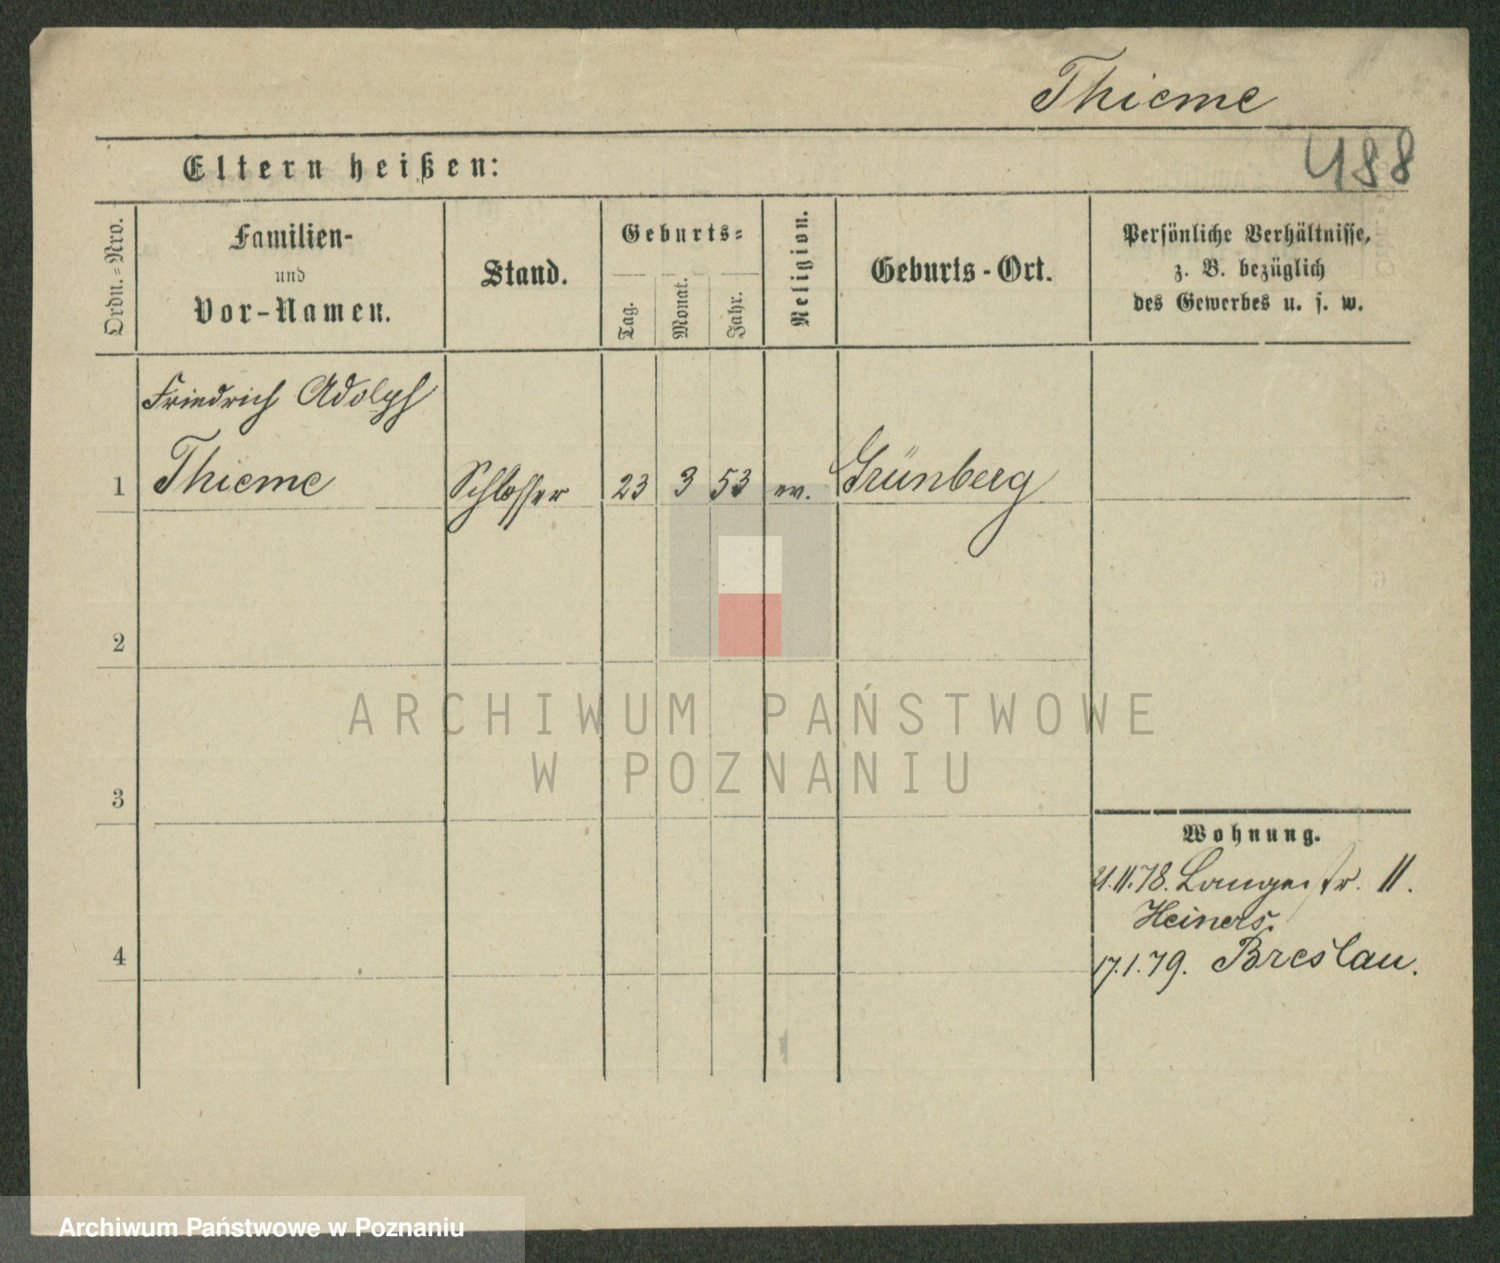 Thieme
488
Eltern heißen:
Ordn.=Nro.
Familien-
und
Vor-Namen.
Stand.
Geburts=
Tag.
Monat.
Jahr.
Religion.
Geburts-Ort.
Persönliche Verhältnisse,
z. B. bezüglich
des Gewerbes u. s. w.
Friedrich Adolph
1 Thieme Schlosser 23 3 53 ev. Grünberg
2
ARCHIWUM PAŃSTWOWE
W POZNANIU
3
Wohnung.
21.11.78. Langestr. 11.
Heiners.
4
17.1.79. Breslau.
Archiwum Państwowe w Poznaniu